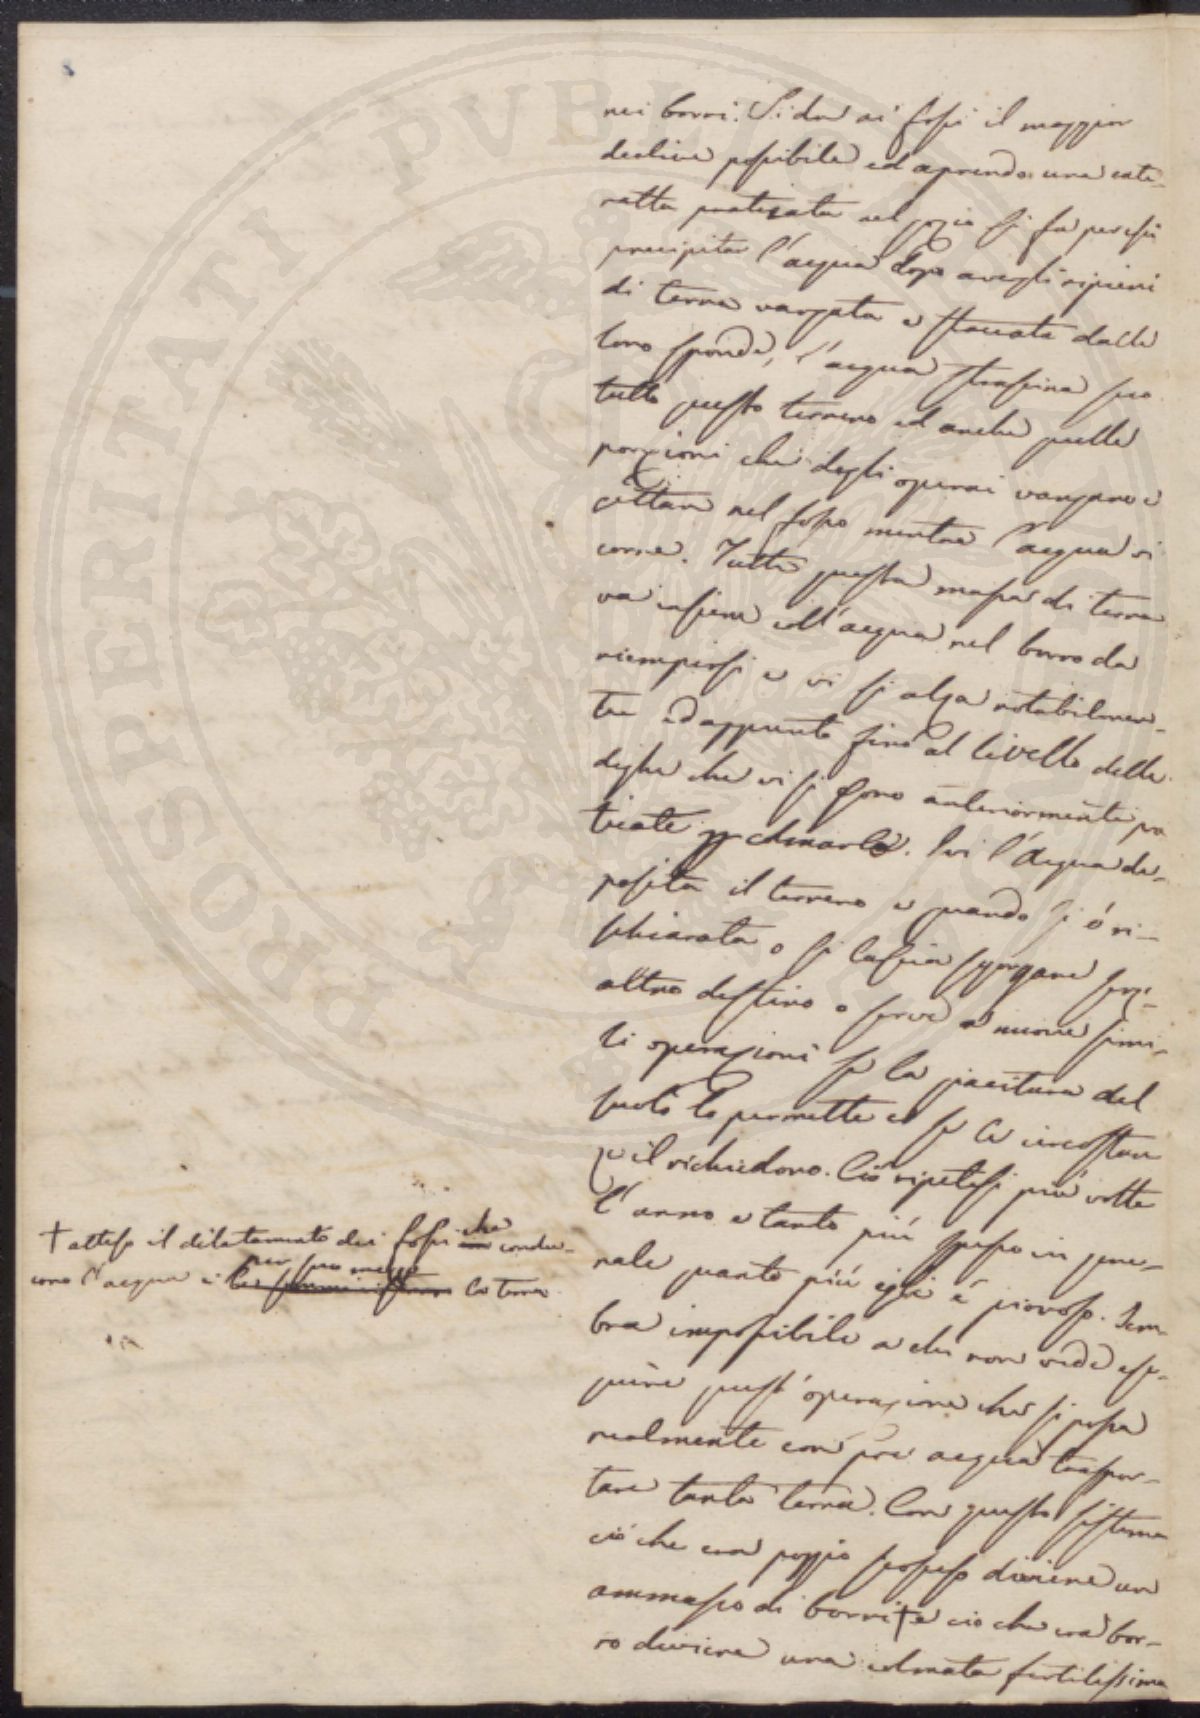 nei borri. Si dà ai fossi il maggior
declive possibile ed aprendo una cate-
ratta praticata nel gozio si fa perciò
precipitar l'acqua dopo avegli ripieni
di terra vangata e staccata dalle
loro sponde, l'acqua strascina seco
tutto questo terreno ed anche quelle
porzioni che degli operai vangano e
gettan nel fosso mentre l'acqua vi
corre. Tutta questa massa di terra
va insieme coll'acqua nel borro da
riempirsi e vi si alza notabilmen-
te ed appunto fino al livello delle
dighe che vi si sono anteriormente pra
ticate per colmarlo. Ivi l'acqua de-
posita il terreno e quando si è ri-
schiarata o si lascia sgorgare senz'
altro destino o serve a nuove simi-
li operazioni se la giacitura del
suolo lo permette e se le circostan
ze il richiedono. Ciò ripetesi più volte
l'anno e tanto più spesso in gene-
rale quanto più egli è piovoso. Sem-
bra impossibile a chi non vede ese-
guire quest'operazione che si possa
realmente con poc' acqua traspor-
tare tanta terra. Con questo sistema
ciò che era poggio scosceso diviene un
ammasso di borri † e ciò che era bor-
ro diviene una colmata fertilissima
† atteso il dilatamento dei fossi che condu-
cono l'acqua e per suo mezzo la terra